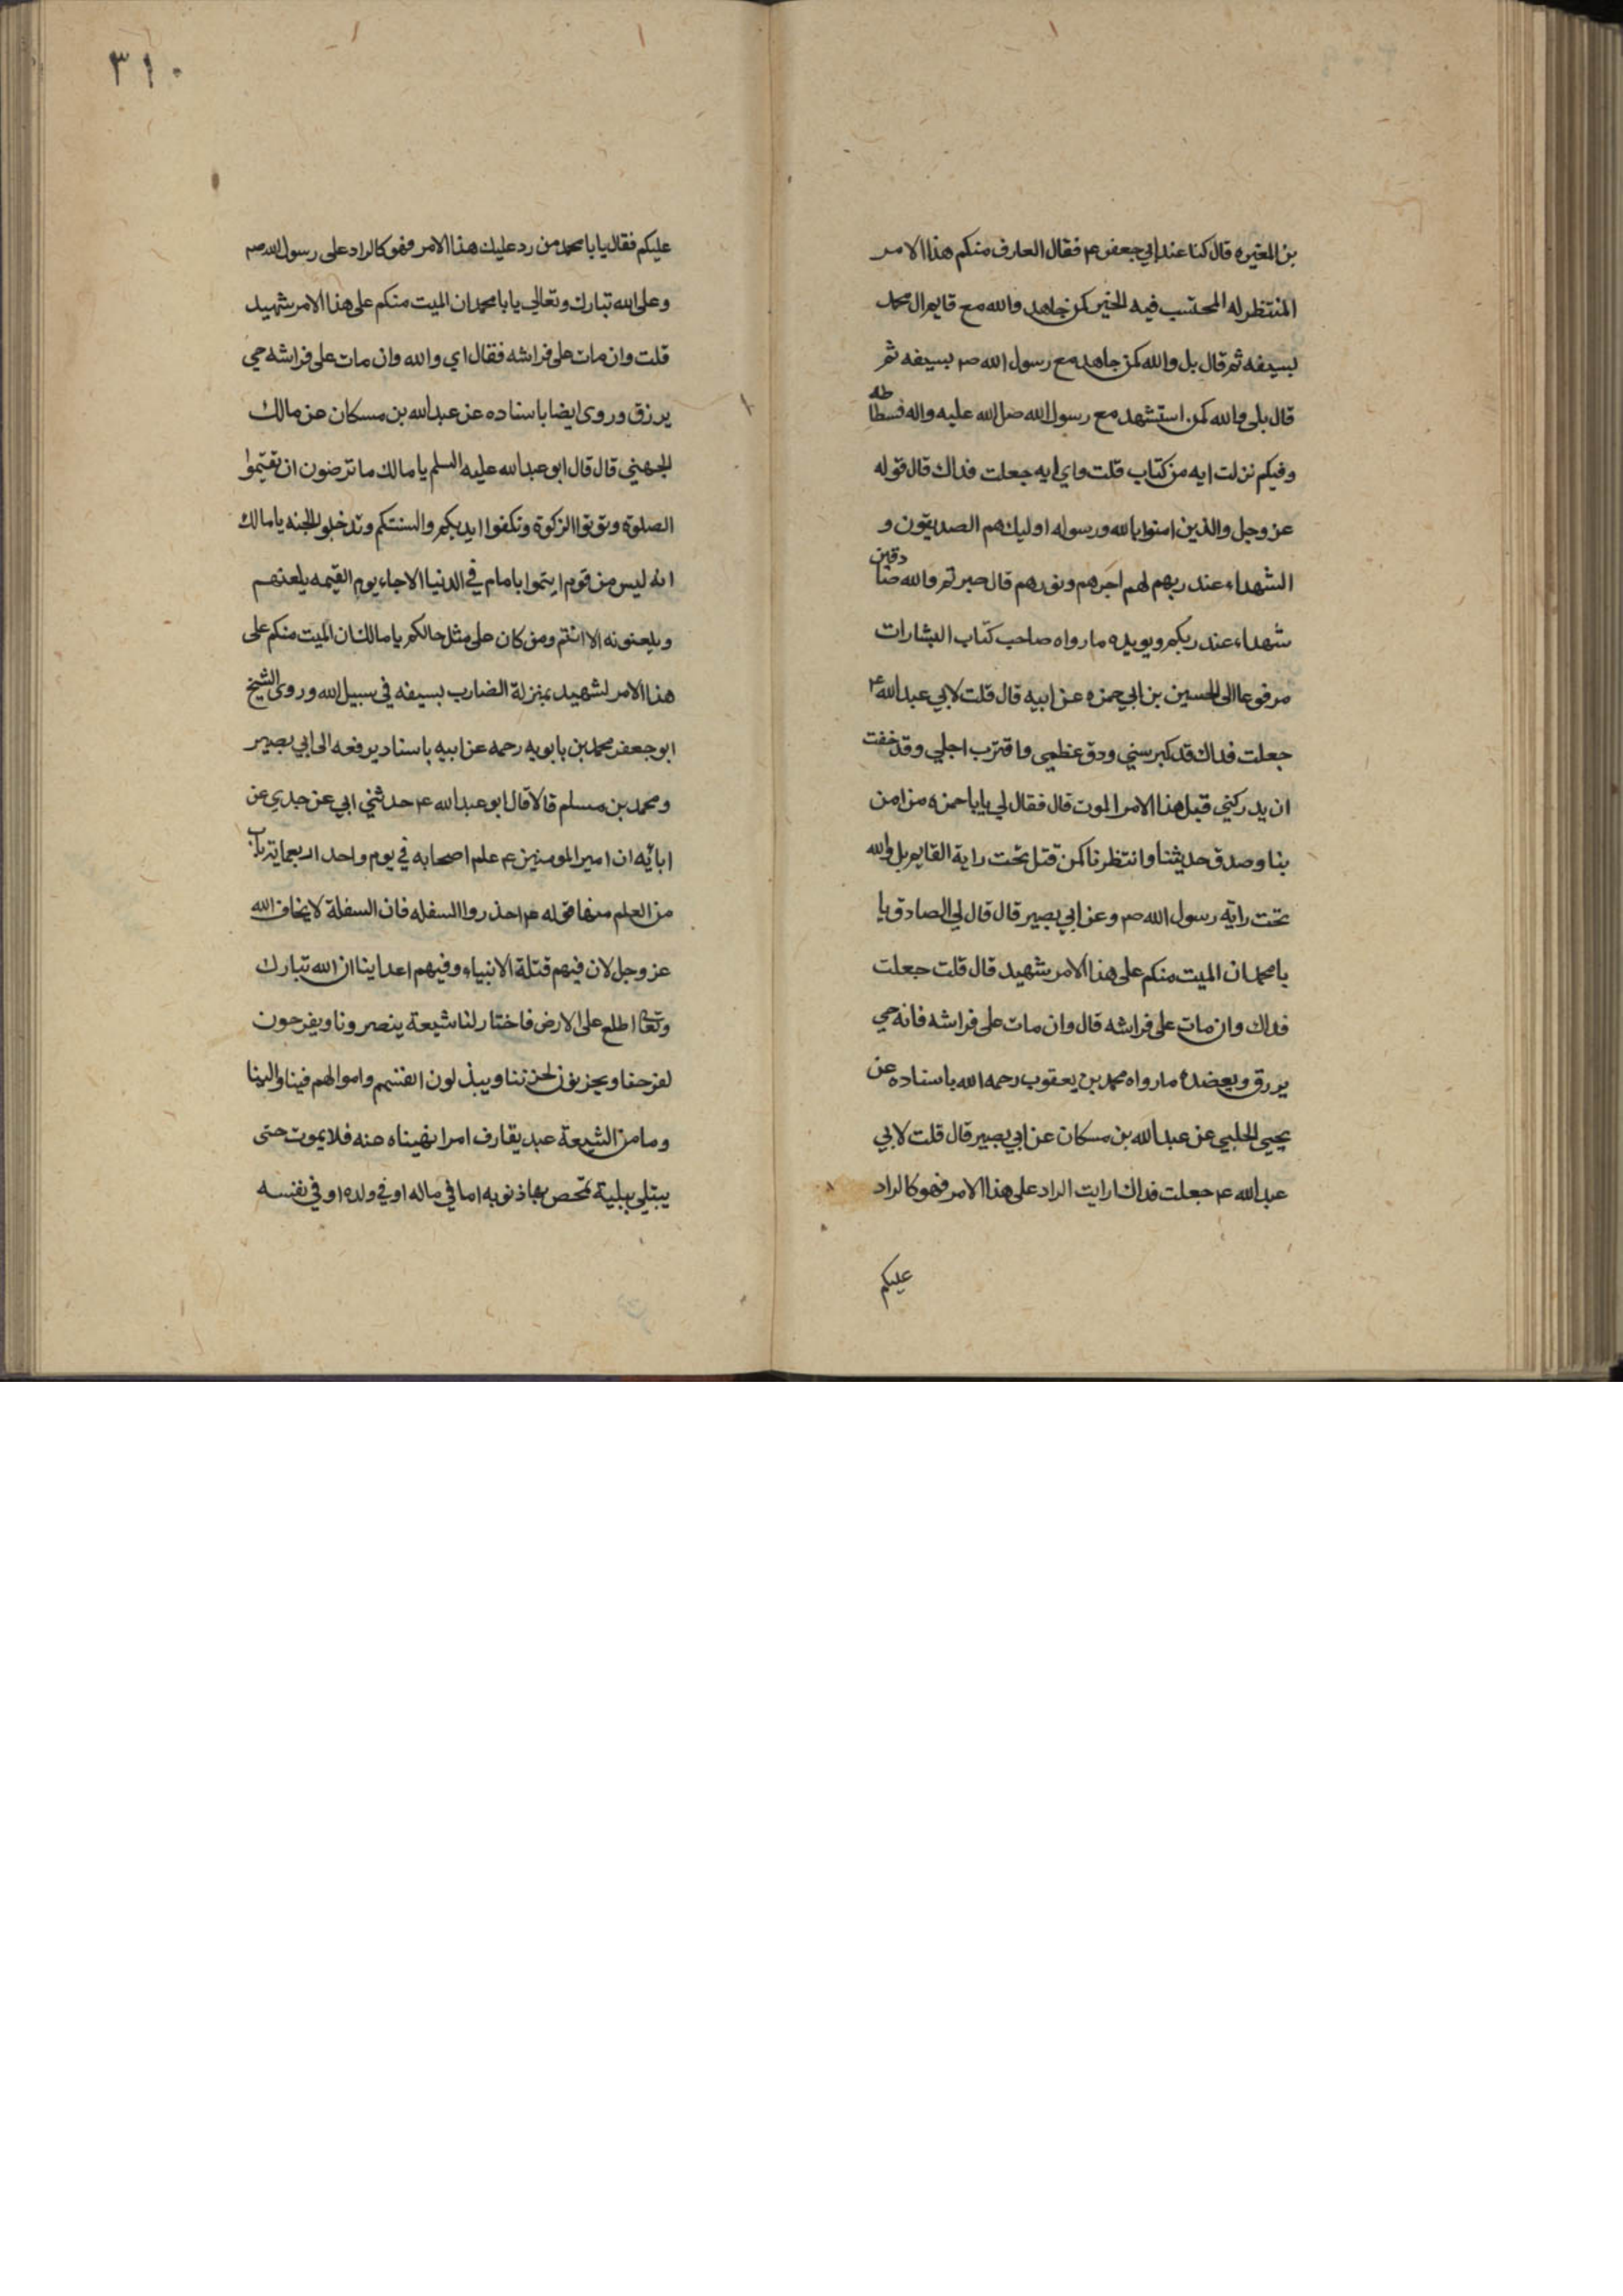 بن المغيره قال كنا عند ابي جعفر ع فقال العارف منكم هذا الامر
المنتظر له المحتسب فيه الخير كمن جاهد والله مع قايم ال محمد
بسيفه ثم قال بل والله كمن جاهد مع رسول الله ص بسيفه ثم
قال بلى والله كمن استشهد مع رسول الله صلى الله عليه واله فسطاطه
وفيكم نزلت ايه من كتاب قلت واي ايه جعلت فداك قال قوله
عز وجل والذين امنوا بالله ورسوله اوليك هم الصديقون و
الشهداء عند ربهم لهم اجرهم ونورهم قال صرتم والله صادقين
شهداء عند ربكم ويويده ما رواه صاحب كتاب البشارات
مرفوعا الى الحسين بن ابي حمزه عن ابيه قال قلت لابي عبد الله ع
جعلت فداك قد كبر سني ودق عظمي واقترب اجلي وقد خفت
ان يدركني قبل هذا الامر الموت قال فقال لي يا با حمزه من امن
بنا وصدق حديثنا وانتظرنا كمن قتل تحت راية القايم بل والله
تحت راية رسول الله ص وعن ابي بصير قال قال لي الصادق يا
با محمد ان الميت منكم على هذا الامر شهيد قال قلت جعلت
فداك وان مات على فراشه قال وان مات على فراشه فانه حي
يرزق ويعضده ما رواه محمد بن يعقوب رحمه الله باسناده عن
يحيى الحلبي عن عبد الله بن مسكان عن ابي بصير قال قلت لابي
عبد الله ع جعلت فداك ارايت الراد على هذا الامر فهو كالراد
عليكم
٣١٠
عليكم فقال يا با محمد من رد عليك هذا الامر فهو كالراد على رسول الله ص
وعلى الله تبارك وتعالي يا با محمد ان الميت منكم على هذا الامر شهيد
قلت وان مات على فراشه فقال اي والله وان مات على فراشه حي
يرزق وروى ايضا باسناده عن عبد الله بن مسكان عن مالك
الجهني قال قال ابو عبد الله عليه السلم يا مالك ما ترضون ان تقيموا
الصلوة وتوتوا الزكوة وتكفوا ايديكم والسنتكم وتدخلوا الجنه يا مالك
انه ليس من قوم ايتموا بامام في الدنيا الا جاء يوم القيمه يلعنهم
ويلعنونه الا انتم ومن كان على مثل حالكم يا مالك ان الميت منكم على
هذا الامر لشهيد بمنزلة الضارب بسيفه في سبيل الله وروى الشيخ
ابو جعفر محمد بن بابويه رحمه عن ابيه باسناد يرفعه الى ابي بصير
ومحمد بن مسلم قالا قال ابو عبد الله ع حدثني ابي عن جدي عن
ابائه ان امير المومنين ع علم اصحابه في يوم واحد اربعماية باب
من العلم منها قوله ع احذروا السفله فان السفلة لا يخاف الله
عز وجل لان فيهم قتلة الانبياء وفيهم اعداينا ان الله تبارك
وتعا اطلع على الارض فاختار لنا شيعة ينصرونا ويفرحون
لفرحنا ويحزنون لحزننا ويبذلون انفسهم واموالهم فينا والينا
وما من الشيعة عبد يقارف امرا نهيناه عنه فلا يموت حتى
يبتلي ببلية تمحص بها ذنوبه اما في ماله او في ولده او في نفسه